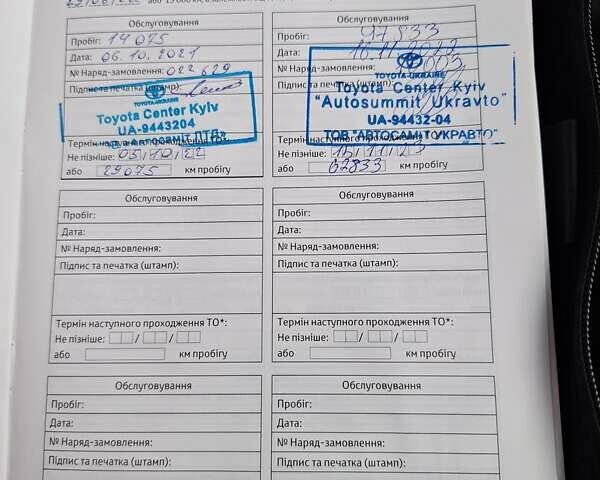 Обслуговування
Пробіг: 14 075
Дата: 06.10.2021
№ Наряд-замовлення: 022 629
Підпис та печатка (штамп):
TOYOTA-UKRAINE
Toyota Center Kyiv
UA-9443204
Термін наступного проходження ТО*:
Не пізніше: 05/10/22
або 29075 км пробігу
Обслуговування
Пробіг: 47833
Дата: 16.11.2022
№ Наряд-замовлення:
Підпис та печатка
TOYOTA-UKRAINE
Toyota Center Kyiv
"Autosummit Ukravto"
UA-94432-04
ТОВ "АВТОСАМІТ УКРАВТО"
Термін
Не пізніше: 15/11/23
або 62833 км пробігу
Обслуговування
Пробіг:
Дата:
№ Наряд-замовлення:
Підпис та печатка (штамп):
Термін наступного проходження ТО*:
Не пізніше: / /
або км пробігу
Обслуговування
Пробіг:
Дата:
№ Наряд-замовлення:
Підпис та печатка (штамп):
Термін наступного проходження ТО*:
Не пізніше: / /
або км пробігу
Обслуговування
Пробіг:
Дата:
№ Наряд-замовлення:
Підпис та печатка (штамп):
Обслуговування
Пробіг:
Дата:
№ Наряд-замовлення:
Підпис та печатка (штамп):